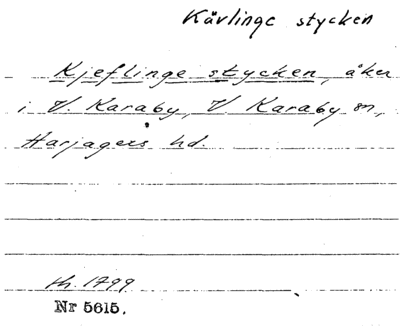 Kävlinge stycken
Kjeflinge stycken, åker
i V. Karaby, V Karaby sn,
Harjagers hd.
th. 1799
Nr 5615.